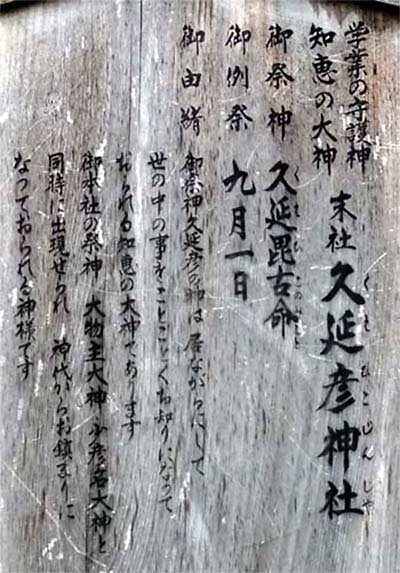 学業の守護神
知恵の大神
末社 久延彦神社
くえひこじんしゃ
御祭神 久延毘古命
くえびこのみこと
御例祭 九月一日
御由緒
御祭神久延彦の神は居ながらにして
世の中の事をことごとくお知りになって
おられる知恵の大神であります
御本社の祭神 大物主大神 少彦名大神と
同時に出現せられ 神代からお鎮まりに
なっておられる神様です